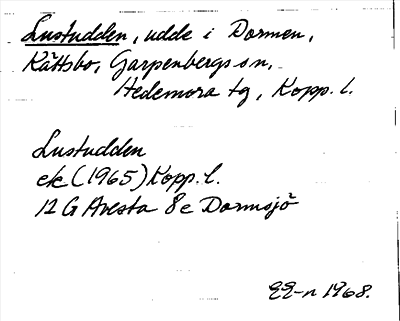 Lustudden, udde i Dormen,
Kättsbo, Garpenbergs sn,
Hedemora tg, Kopp. l.
Lustudden
ek (1965) Kopp. l.
12 G Avesta 8e Dormsjö
1968.